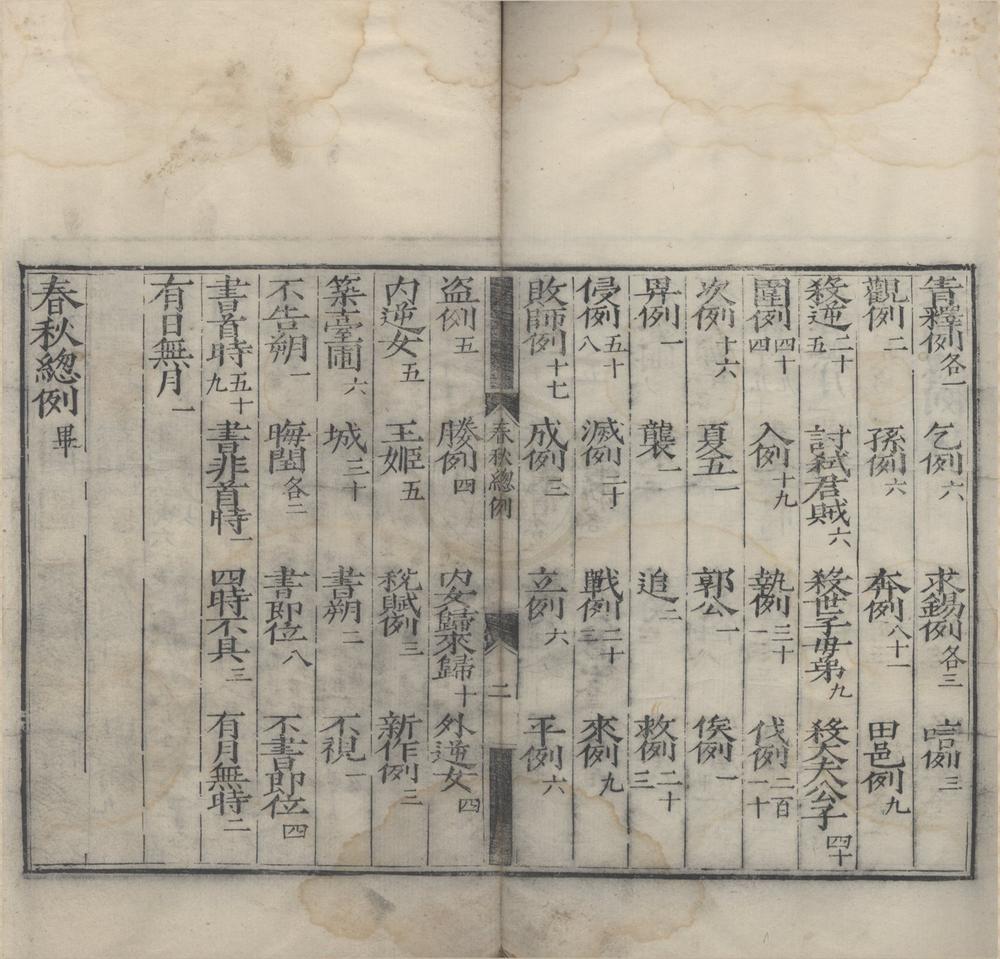 眚釋例各一 乞例六 求錫例各三 唁例三
觀例二 孫例六 奔例八十一 田邑例九
殺逆二十五 討弒君賊六 殺世子母弟九 殺大夫公子四十
圍例四十四 入例十九 執例三十一 伐例二百一十
次例十六 夏五一 郭公一 俟例一
畀例一 襲一 追二 救例二十三
侵例五十八 滅例三十 戰例二十三 來例九
敗師例十七 成例三 立例六 平例六
春秋緫例 二
盜例五 媵例四 内女歸來歸十 外逆女四
内逆女五 王姬五 稅賦例三 新作例三
築臺囿六 城三十 書朔二 不視一
不告朔一 晦閏各二 書即位八 不書即位四
書首時五十九 書非首時一 四時不具三 有月無時二
有日無月一
春秋緫例 畢